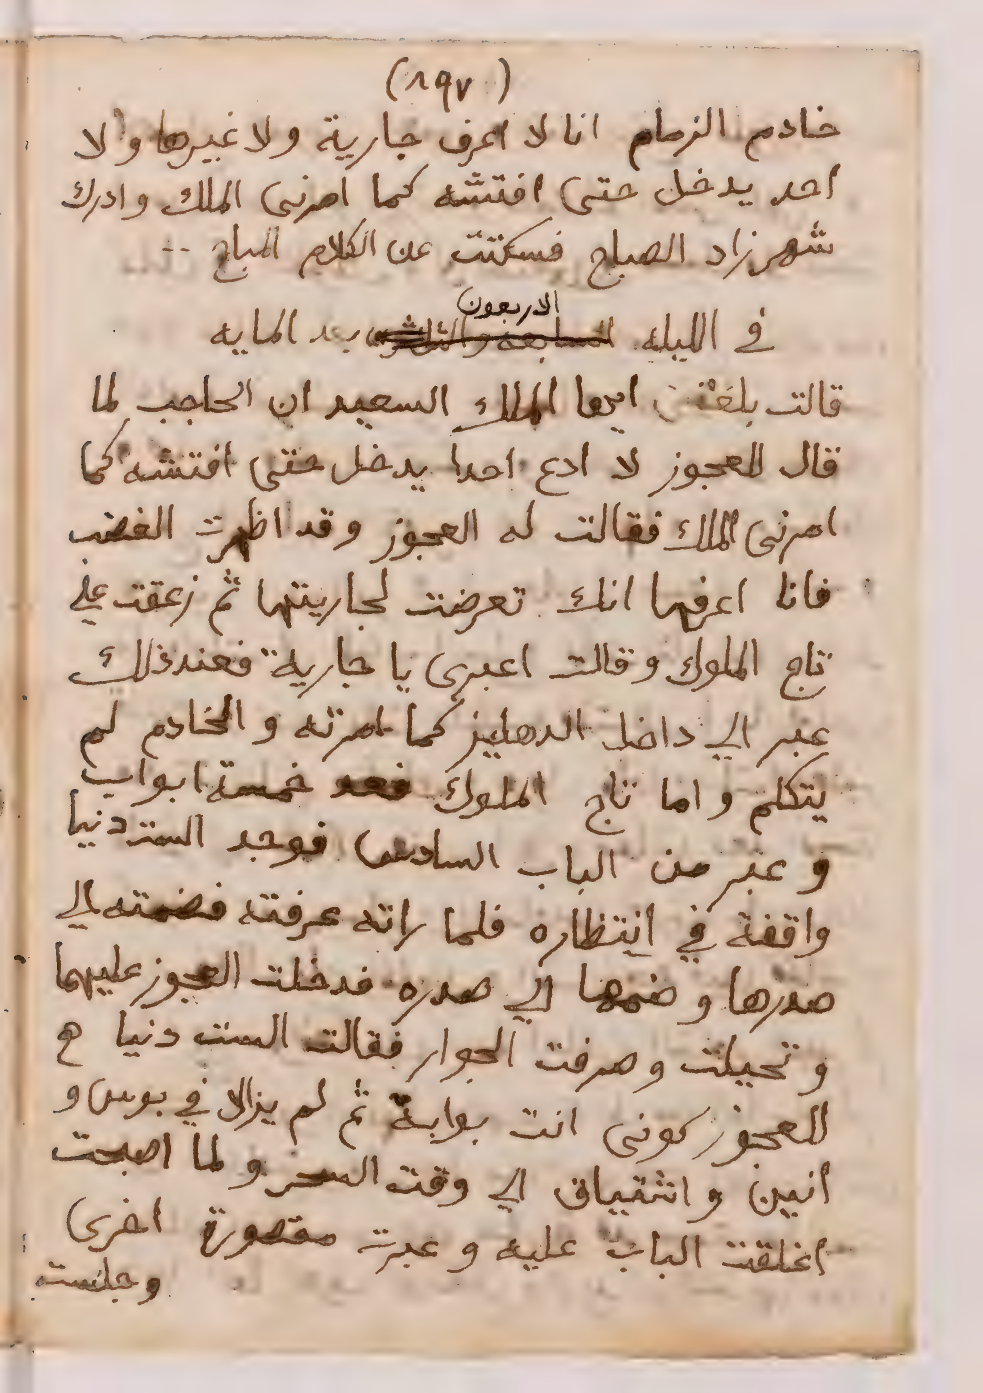 (١٩٧)
خادم الزمام انا لا اعرف جارية ولا غيرها ولا
احد يدخل حتى افتشه كما امرنى الملك وادرك
شهرزاد الصباح فسكتت عن الكلام المباح --
الاربعون
فى الليله السابعه والثلاثون بعد المايه
قالت بلغنى ايها الملك السعيد ان الحاجب لما
قال للعجوز لا ادع احدا يدخل حتى افتشه كما
امرنى الملك فقالت له العجوز وقد اظهرت الغضب
فانا اعرفها انك تعرضت لجاريتها ثم زعقت على
تاج الملوك وقالت اعبرى يا جارية فعند ذلك
عبر الي داخل الدهليز كما امرته والخادم لم
يتكلم واما تاج الملوك فعد خمسة ابواب
وعبر من الباب السادس فوجد الست دنيا
واقفة في انتظاره فلما راته عرفته فضمته الي
صدرها وضمها الي صدره فدخلت العجوز عليهما
وتحيلت وصرفت الجوار فقالت الست دنيا
للعجوز كونى انت بوابة ثم لم يزالا في بوس و
أنين واشتياق الي وقت السحر ولما اصبحت
أغلقت الباب عليه وعبرت مقصورة اخرى
وجلست